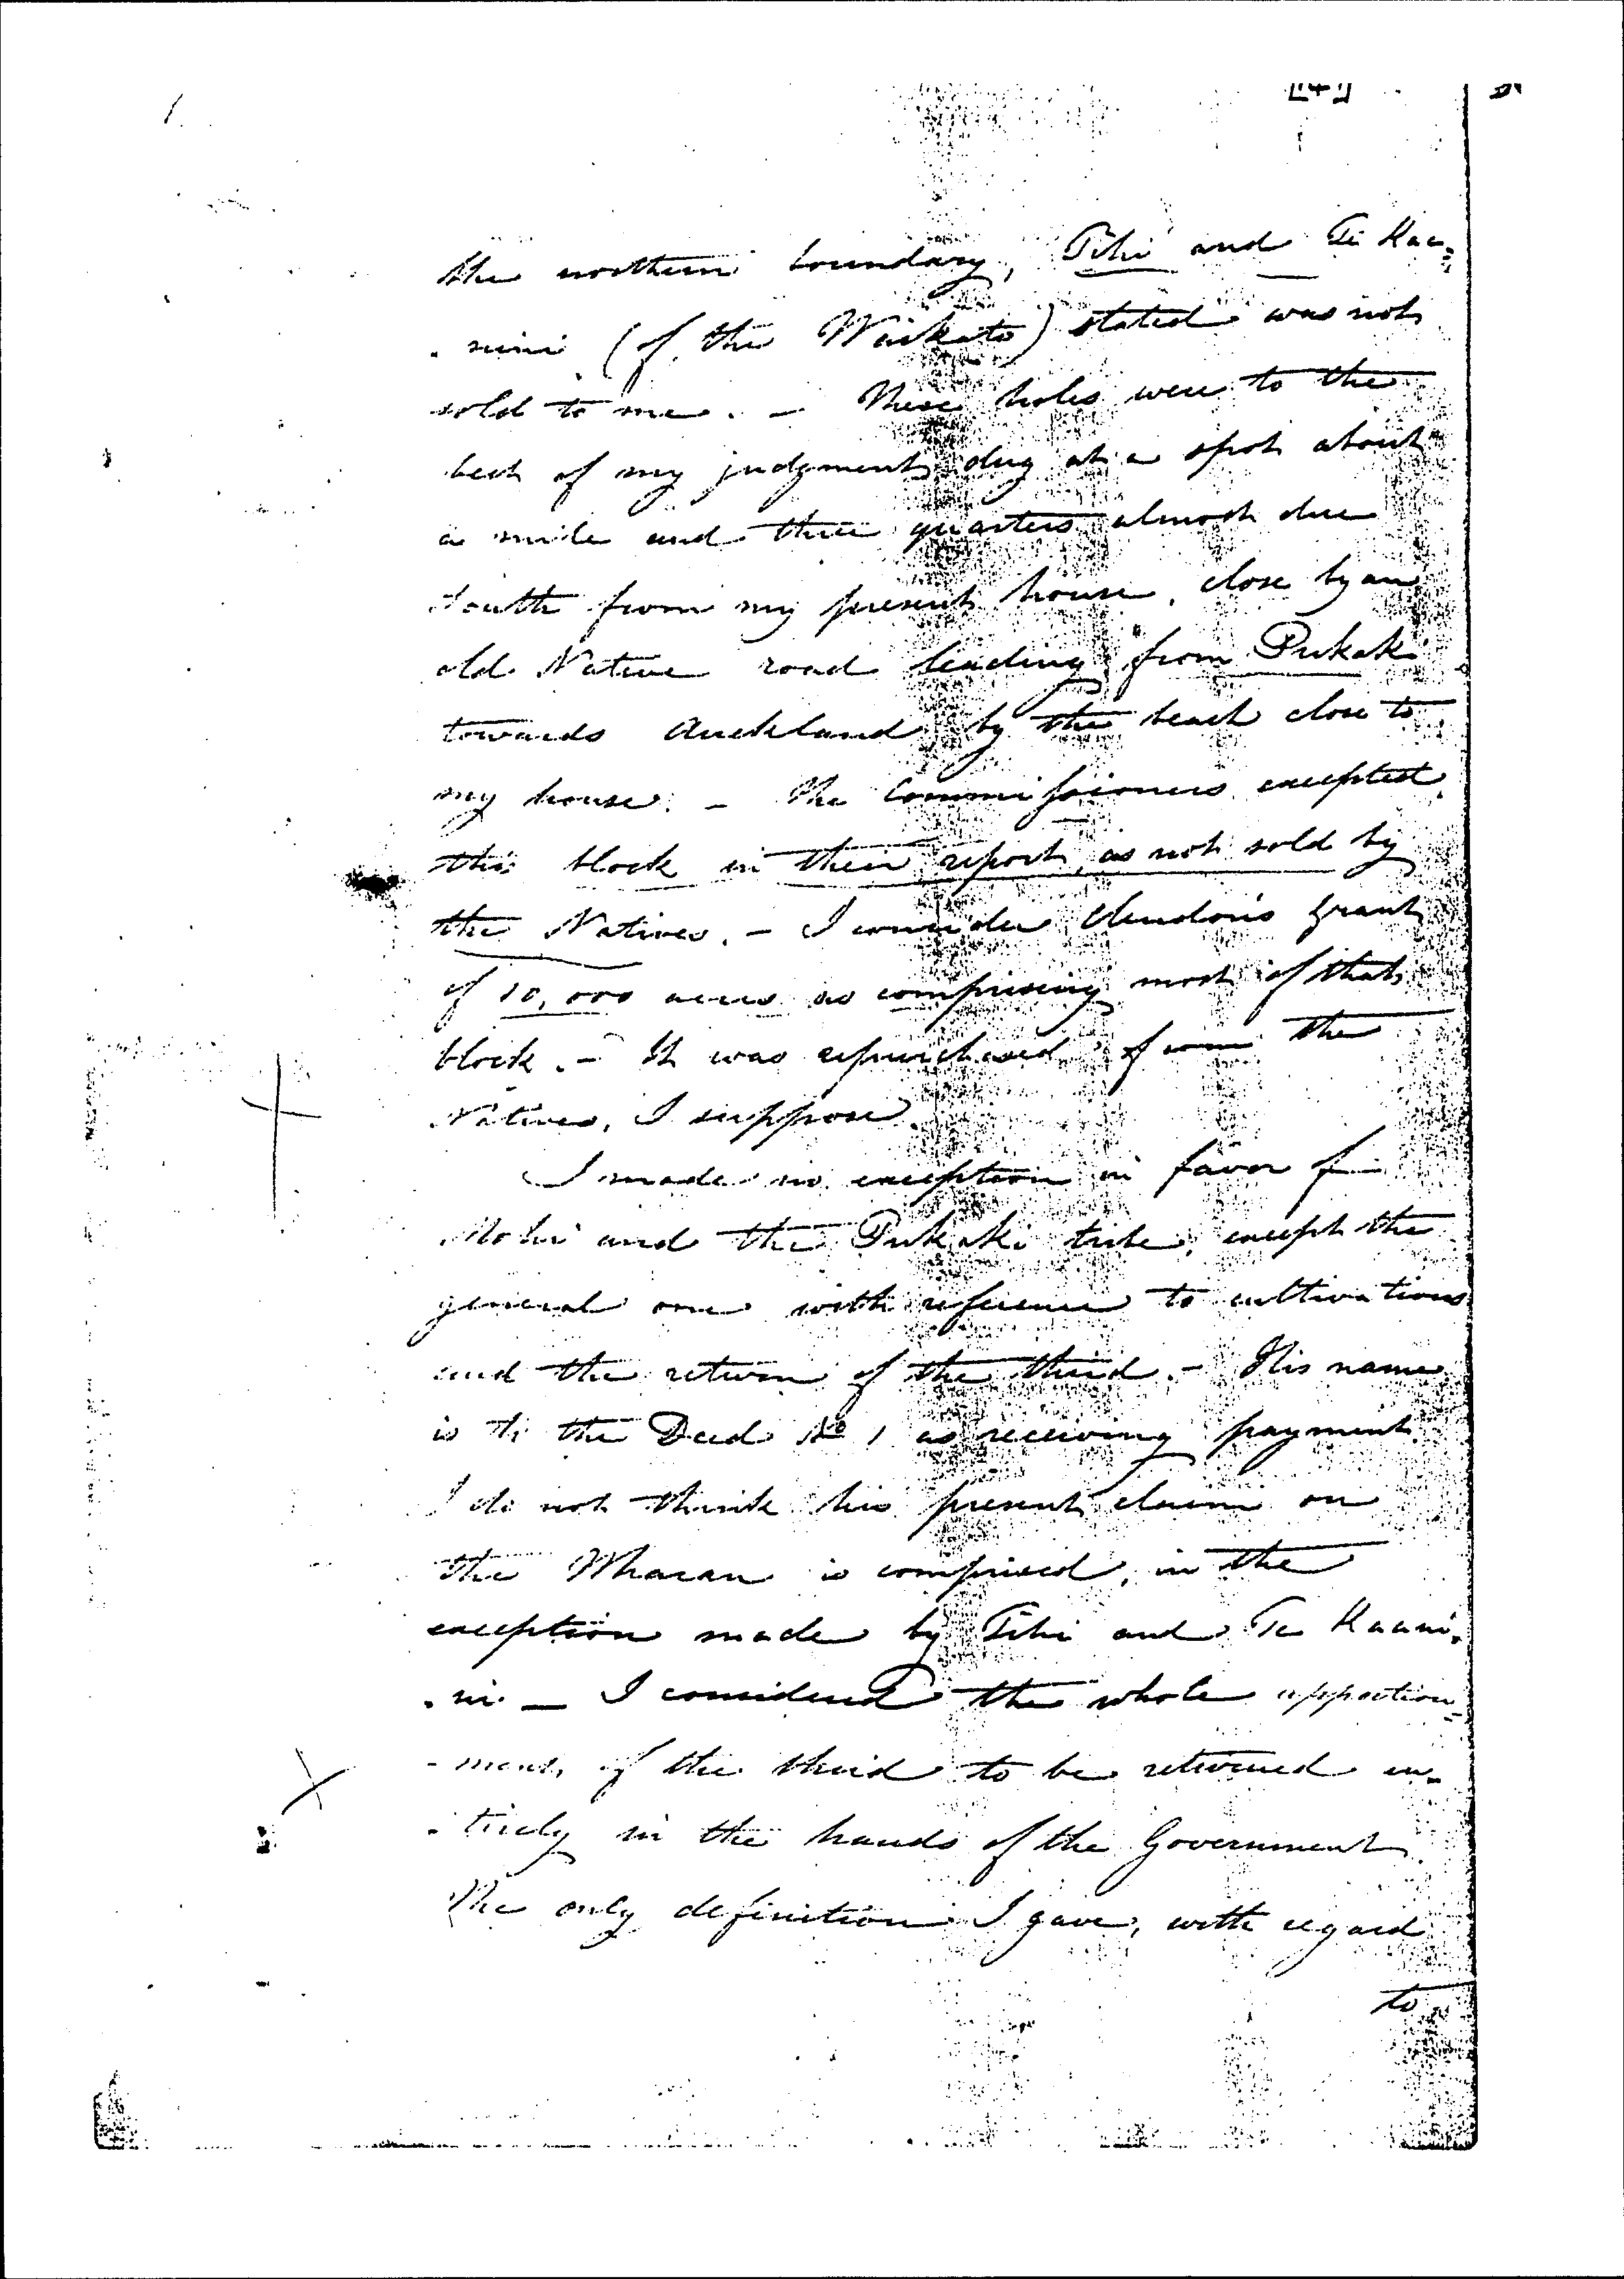 the northern boundary, Tihi and Te Kaa-
nini (of the Waikato) stated was not
sold to me. - These holes were to the
best of my judgment dug at a spot about
a mile and three quarters almost due
South from my present house, close by an
old Native road leading from Pukaki
towards Auckland by the beach close to
my house. - The Commissioners excepted
this block in their report, as not sold by
the Natives. - I consider Clendon's grant
of 10,000 acres as comprising most of that
block. - It was repurchased from the
Natives, I suppose.
I made no exception in favor of
Mohi and the Pukaki tribe, except the
general one with reference to cultivations
and the return of the third. - His name
is in the Deed No 1 as receiving payment.
I do not think his present claim on
the Wharau is comprised, in the
exception made by Tihi and Te Kaani-
-ni. - I considered the whole apportion-
-ment, of the third to be returned en-
-tirely in the hands of the Government
The only definition I gave, with regard
to